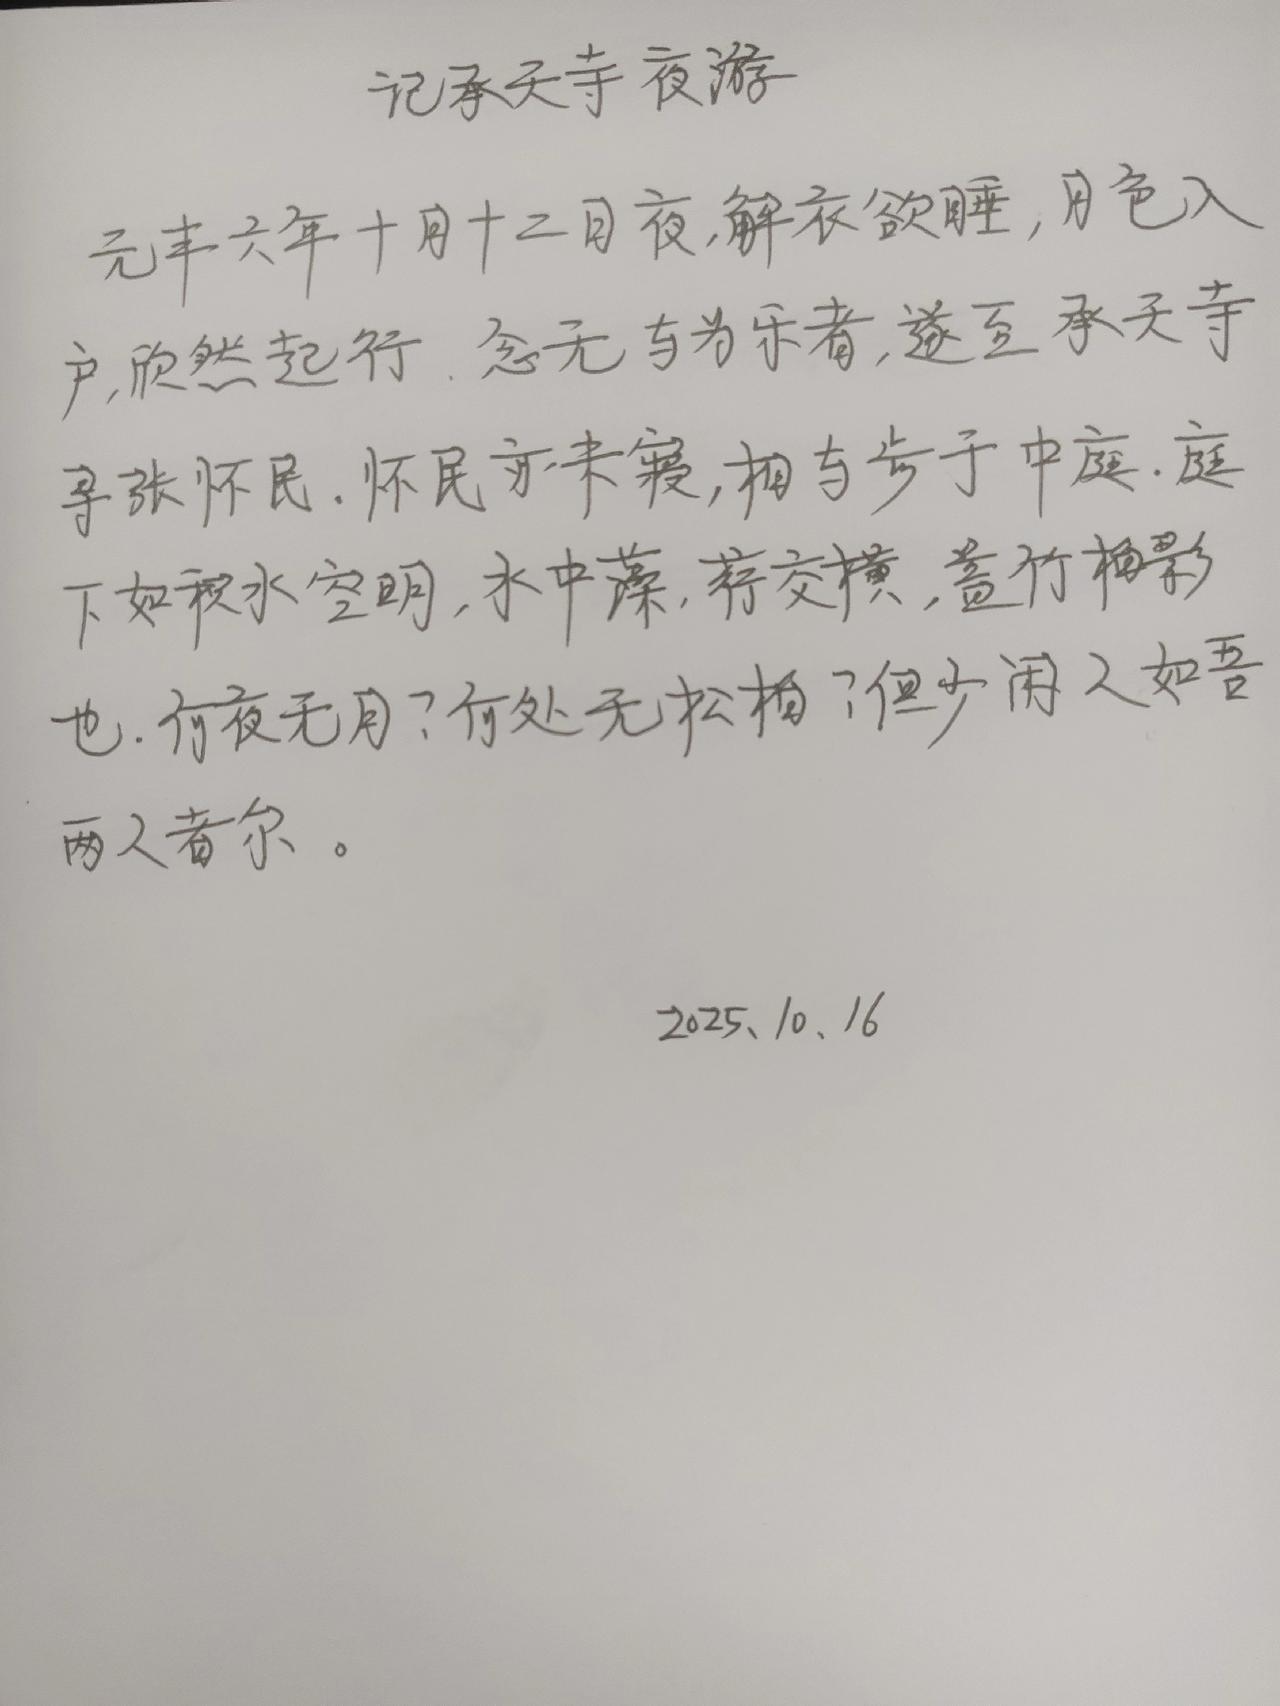 记承天寺夜游
元丰六年十月十二日夜,解衣欲睡,月色入
户,欣然起行.念无与为乐者,遂至承天寺
寻张怀民.怀民亦未寝,相与步于中庭.庭
下如积水空明,水中藻,荇交横,盖竹柏影
也.何夜无月?何处无松柏?但少闲人如吾
两人者尔。
2025、10、16